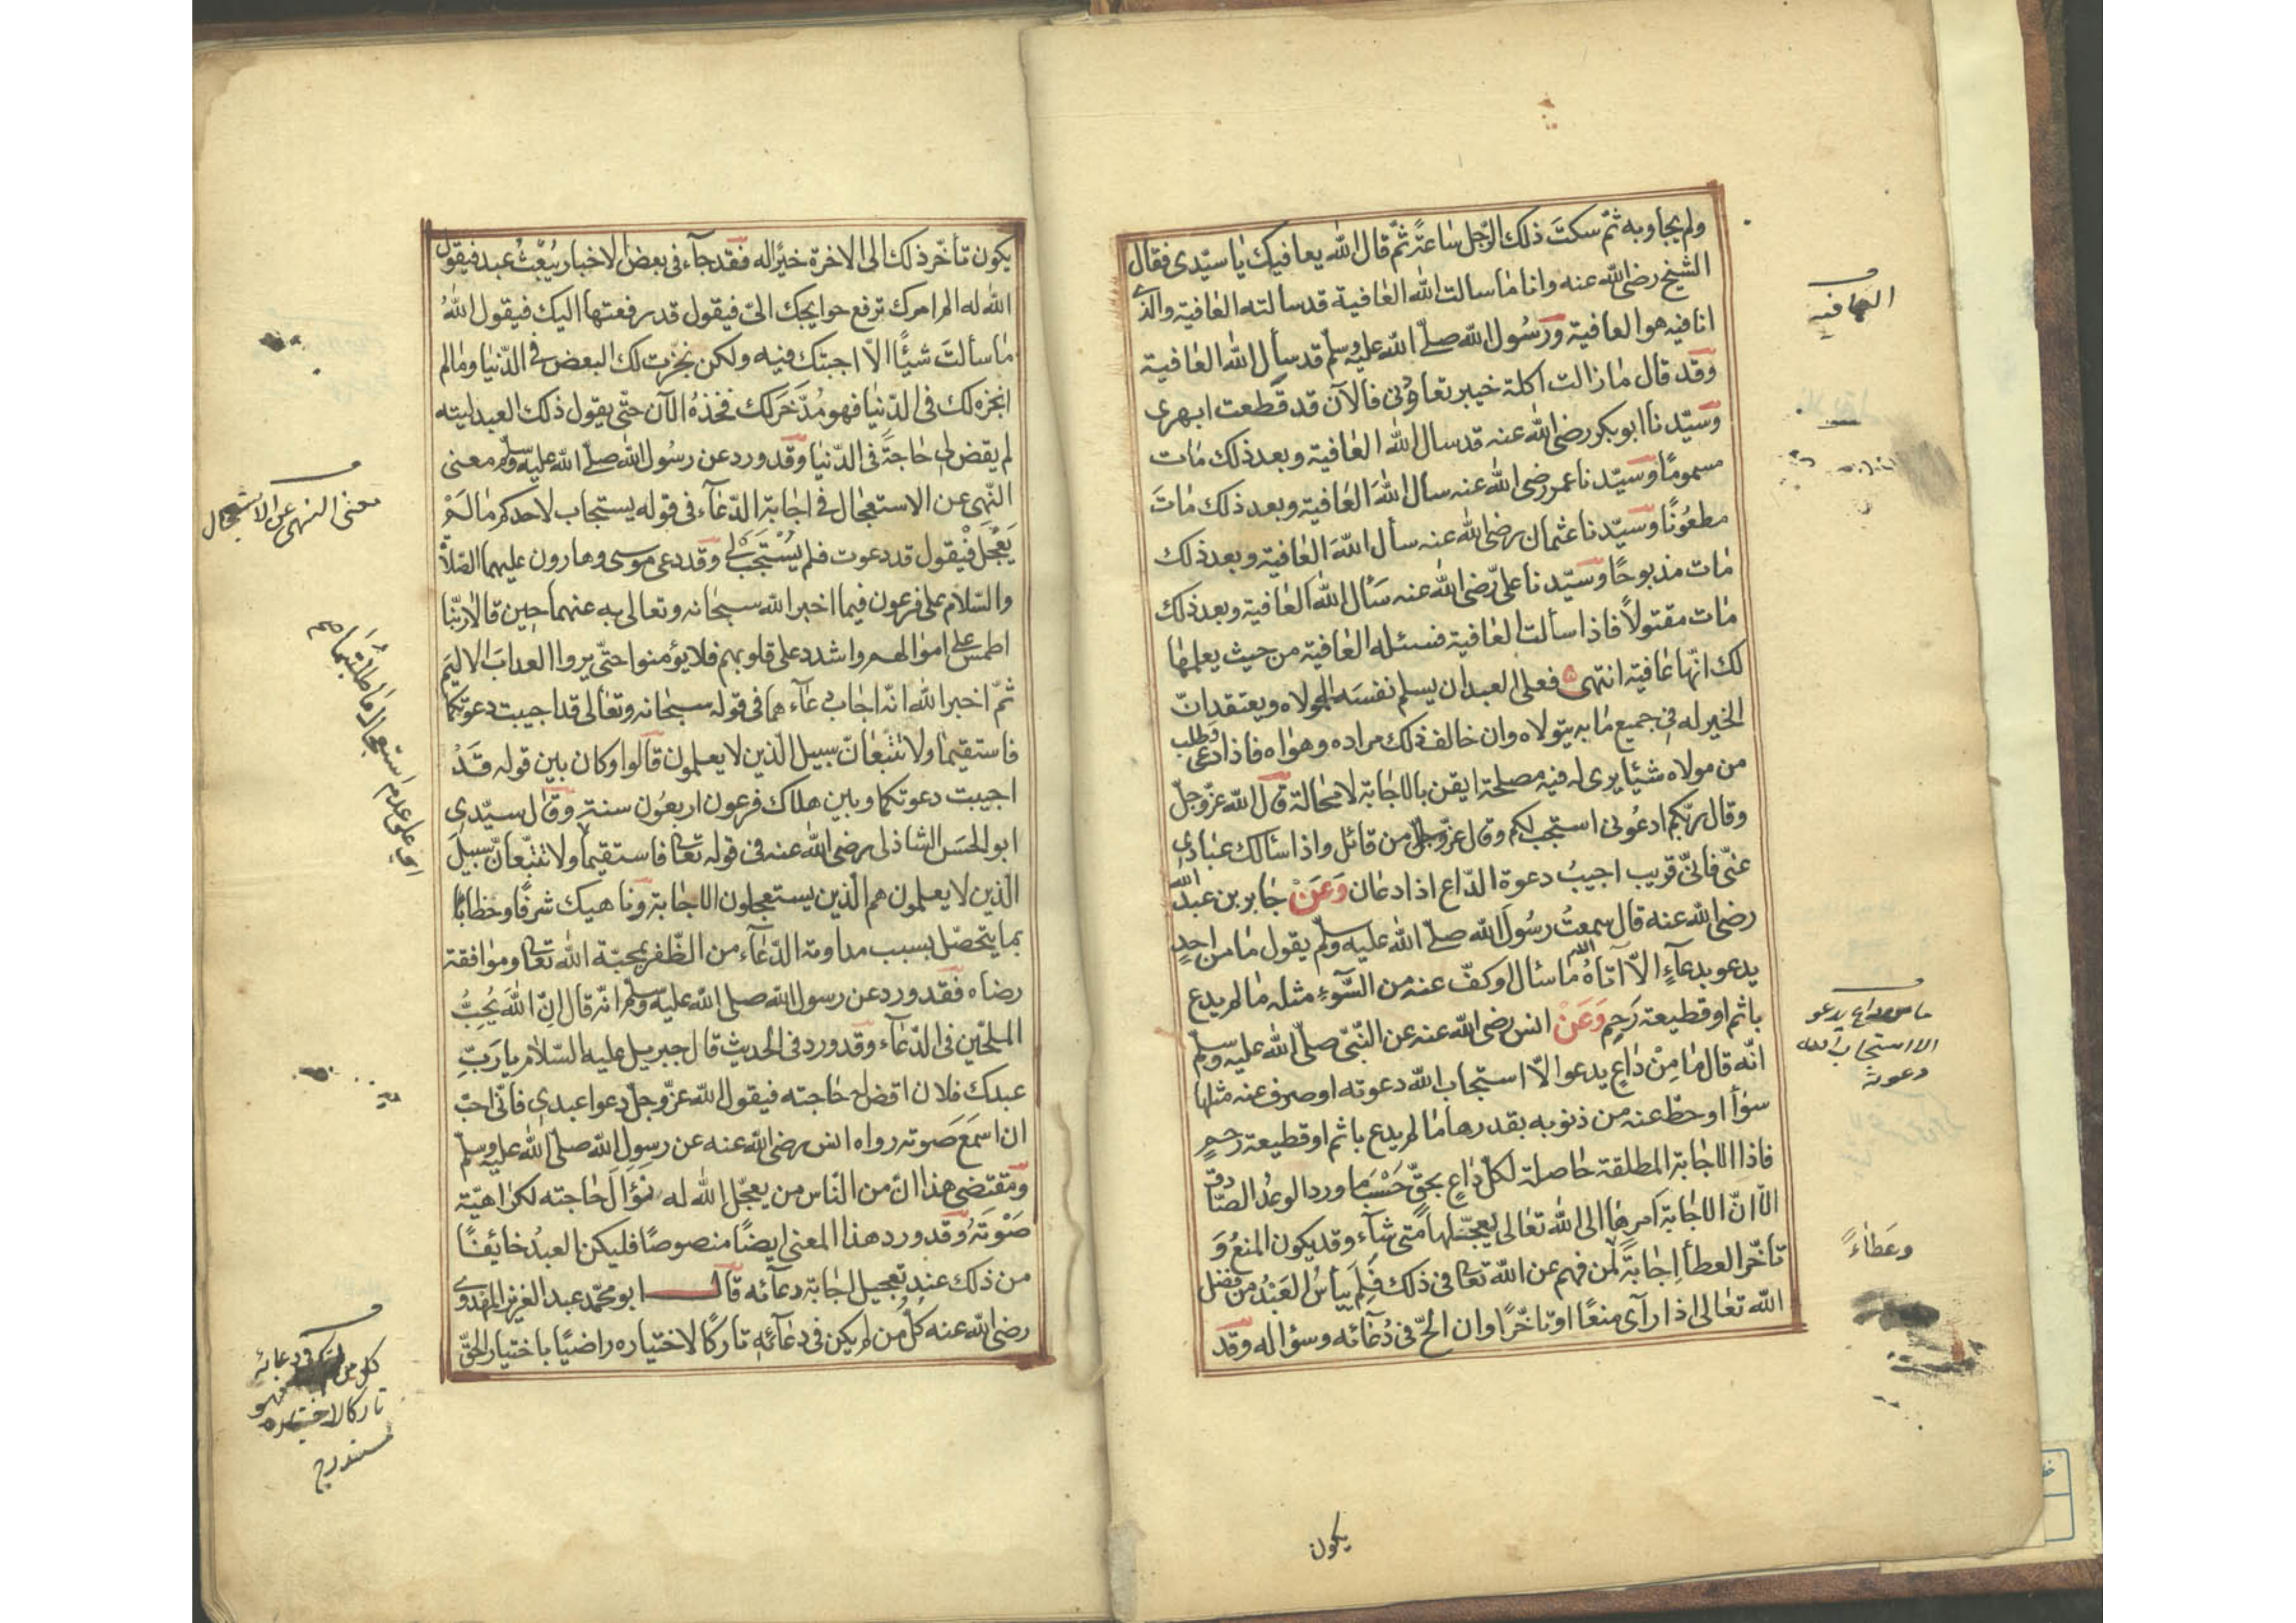 ولم يجاوبه ثم سكت ذلك الرجل ساعة ثم قال الله يعافيك يا سيدى فقال
الشيخ رضى الله عنه وانا ما سالت الله العافية قد سالته العافية والذى
انا فيه هو العافية ورسول الله صلى الله عليه وسلم قد سأل الله العافية
وقد قال ما زالت اكلة خيبر تعاودنى فالآن قد قطعت ابهرى
وسيدنا ابو بكر رضى الله عنه قد سال الله العافية وبعد ذلك مات
مسموما وسيدنا عمر رضى الله عنه سال الله العافية وبعد ذلك مات
مطعونا وسيدنا عثمان رضى الله عنه سأل الله العافية وبعد ذلك
مات مذبوحا وسيدنا على رضى الله عنه سأل الله العافية وبعد ذلك
مات مقتولا فاذا سألت العافية فسئله العافية من حيث يعلمها
لك انها عافية انتهى فعلى العبد ان يسلم نفسه لمولاه ويعتقد ان
الخير له فى جميع ما به يتولاه وان خالف ذلك مراده وهواه فاذا دعى وطلب
من مولاه شيئا يرى له فيه مصلحة ايقن بالاجابة لا محالة قال الله عز وجل
وقال ربكم ادعونى استجب لكم وقال عز وجل من قائل واذا سألك عبادى
عنى فانى قريب اجيب دعوة الداع اذا دعان وعن جابر بن عبد الله
رضى الله عنه قال سمعت رسول الله صلى الله عليه وسلم يقول ما من احد
يدعو بدعاء الا آتاه الله ما سأل او كف عنه من السوء مثله ما لم يدع
باثم او قطيعة رحم وعن انس رضى الله عنه عن النبى صلى الله عليه وسلم
انه قال ما من داع يدعوا الا استجاب الله دعوته او صرف عنه مثلها
سوأ او حط عنه من ذنوبه بقدرها ما لم يدع باثم او قطيعة رحم
فاذا الاجابة المطلقة حاصلة لكل داع بحق حسبما ورد الوعد الصادق
الا ان الاجابة امرها الى الله تعالى يعجلها متى شآء وقد يكون المنع و
تأخر العطأ اجابة لمن فهم عن الله تعالى فى ذلك فلم ييأس العبد من فضل
الله تعالى اذا رآى منعا او تاخرا وان الح فى دعآئه وسؤاله وقد
يكون
العافية
ما من داع يدعو
الا استجاب الله
دعوته
وعطاء
يكون تأخر ذلك الى الاخرة خيرا له فقد جآء فى بعض الاخبار يبعث عبد فيقول
الله له الم امرك ترفع حوايجك الى فيقول قد رفعتها اليك فيقول الله
ما سألت شيئا الا اجبتك فيه ولكن نجزت لك البعض فى الدنيا وما لم
انجزه لك فى الدنيا فهو مدخر لك فخذه الآن حتى يقول ذلك العبد ليته
لم يقض لى حاجة فى الدنيا وقد ورد عن رسول الله صلى الله عليه وسلم معنى
النهى عن الاستعجال فى اجابة الدعآء فى قوله يستجاب لاحدكم ما لم
يعجل فيقول قد دعوت فلم يستجب لى وقد دعى موسى وهارون عليهما الصلاة
والسلام على فرعون فيما اخبر الله سبحانه وتعالى به عنهما حين قالا ربنا
اطمس على اموالهم واشدد على قلوبهم فلا يؤمنوا حتى يروا العذاب الاليم
ثم اخبر الله انه اجاب دعآءهما فى قوله سبحانه وتعالى قد اجيبت دعوتكما
فاستقيما ولا تتبعان سبيل الذين لا يعلمون قالوا وكان بين قوله قد
اجيبت دعوتكما وبين هلاك فرعون اربعون سنة وقال سيدى
ابو الحسن الشاذلى رضى الله عنه فى قوله تعالى فاستقيما ولا تتبعان سبيل
الذين لا يعلمون هم الذين يستعجلون الاجابة وناهيك شرفا وحظا
بما يتحصل بسبب مداومة الدعآء من الظفر بمحبة الله تعالى وموافقة
رضاه فقد ورد عن رسول الله صلى الله عليه وسلم انه قال ان الله يحب
الملحين فى الدعآء وقد ورد فى الحديث قال جبريل عليه السلام يا رب
عبدك فلان اقض حاجته فيقول الله عز وجل دعوا عبدى فانى احب
ان اسمع صوته رواه انس رضى الله عنه عن رسول الله صلى الله عليه وسلم
ومقتضى هذا ان من الناس من يعجل الله له نؤال حاجته لكراهية
صوته وقد ورد هذا المعنى ايضا منصوصا فليكن العبد خائفا
من ذلك عند تعجيل اجابة دعآئه قال ابو محمد عبد العزيز المهدوى
رضى الله عنه كل من لم يكن فى دعآئه تاركا لاختياره راضيا باختيار الحق
معنى النهى عن الاستعجال
اى على عدم استعجال ما طلبتماه
كل من لم يكن فى دعائه
تاركا لاختياره فهو
مستدرج